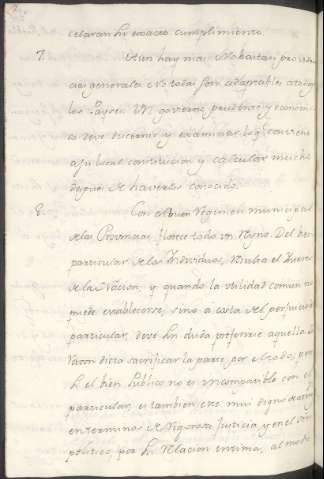 celaran su exacto cumplimiento.
7. Aun hay mas: No bastan providen
cias generales: No todas son adaptables a todos
los Payses. Un govierno prudente y economi
co deve discernir y examinar lo q.e conviene
a su local constitucion y calcular mucho
despues de haverlos conocido.
8. Con el buen Regimen municipal
de las Provincias florece todo un Reyno. Del bien
particular de los Individuos, resulta el interes
de la Nacion, y quando la utilidad comun no
puede establecerse, sino a costa del perjuicio
particular, deve sin duda preferirse aquella. La
razon dicta sacrificar la parte por el todo; pero
si el bien publico no es incompatible con el
particular, es tambien este mui digno de aten
en terminos de rigorosa Justicia y en el
politico, por la relacion intima, al modo